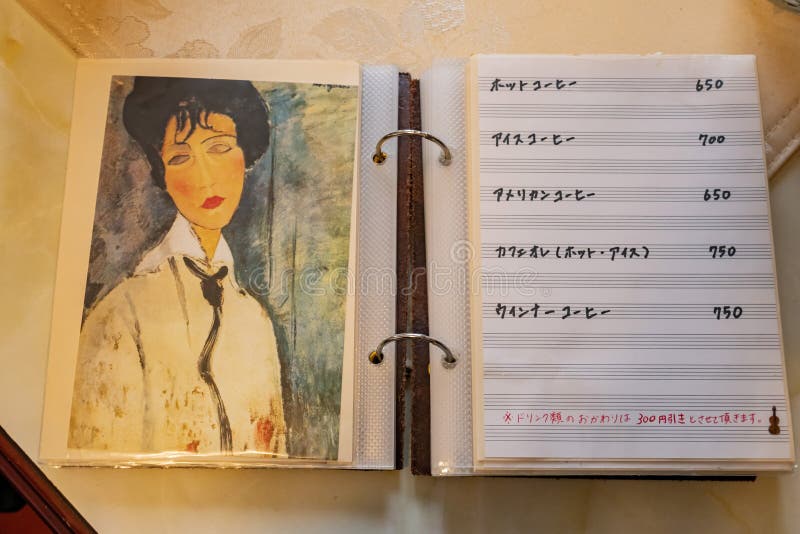 ホットコーヒー 650
アイスコーヒー 700
アメリカンコーヒー 650
カフェオレ(ホット・アイス) 750
ウィンナーコーヒー 750
※ドリンク類のおかわりは 300円引きとさせて頂きます。
dreamstime